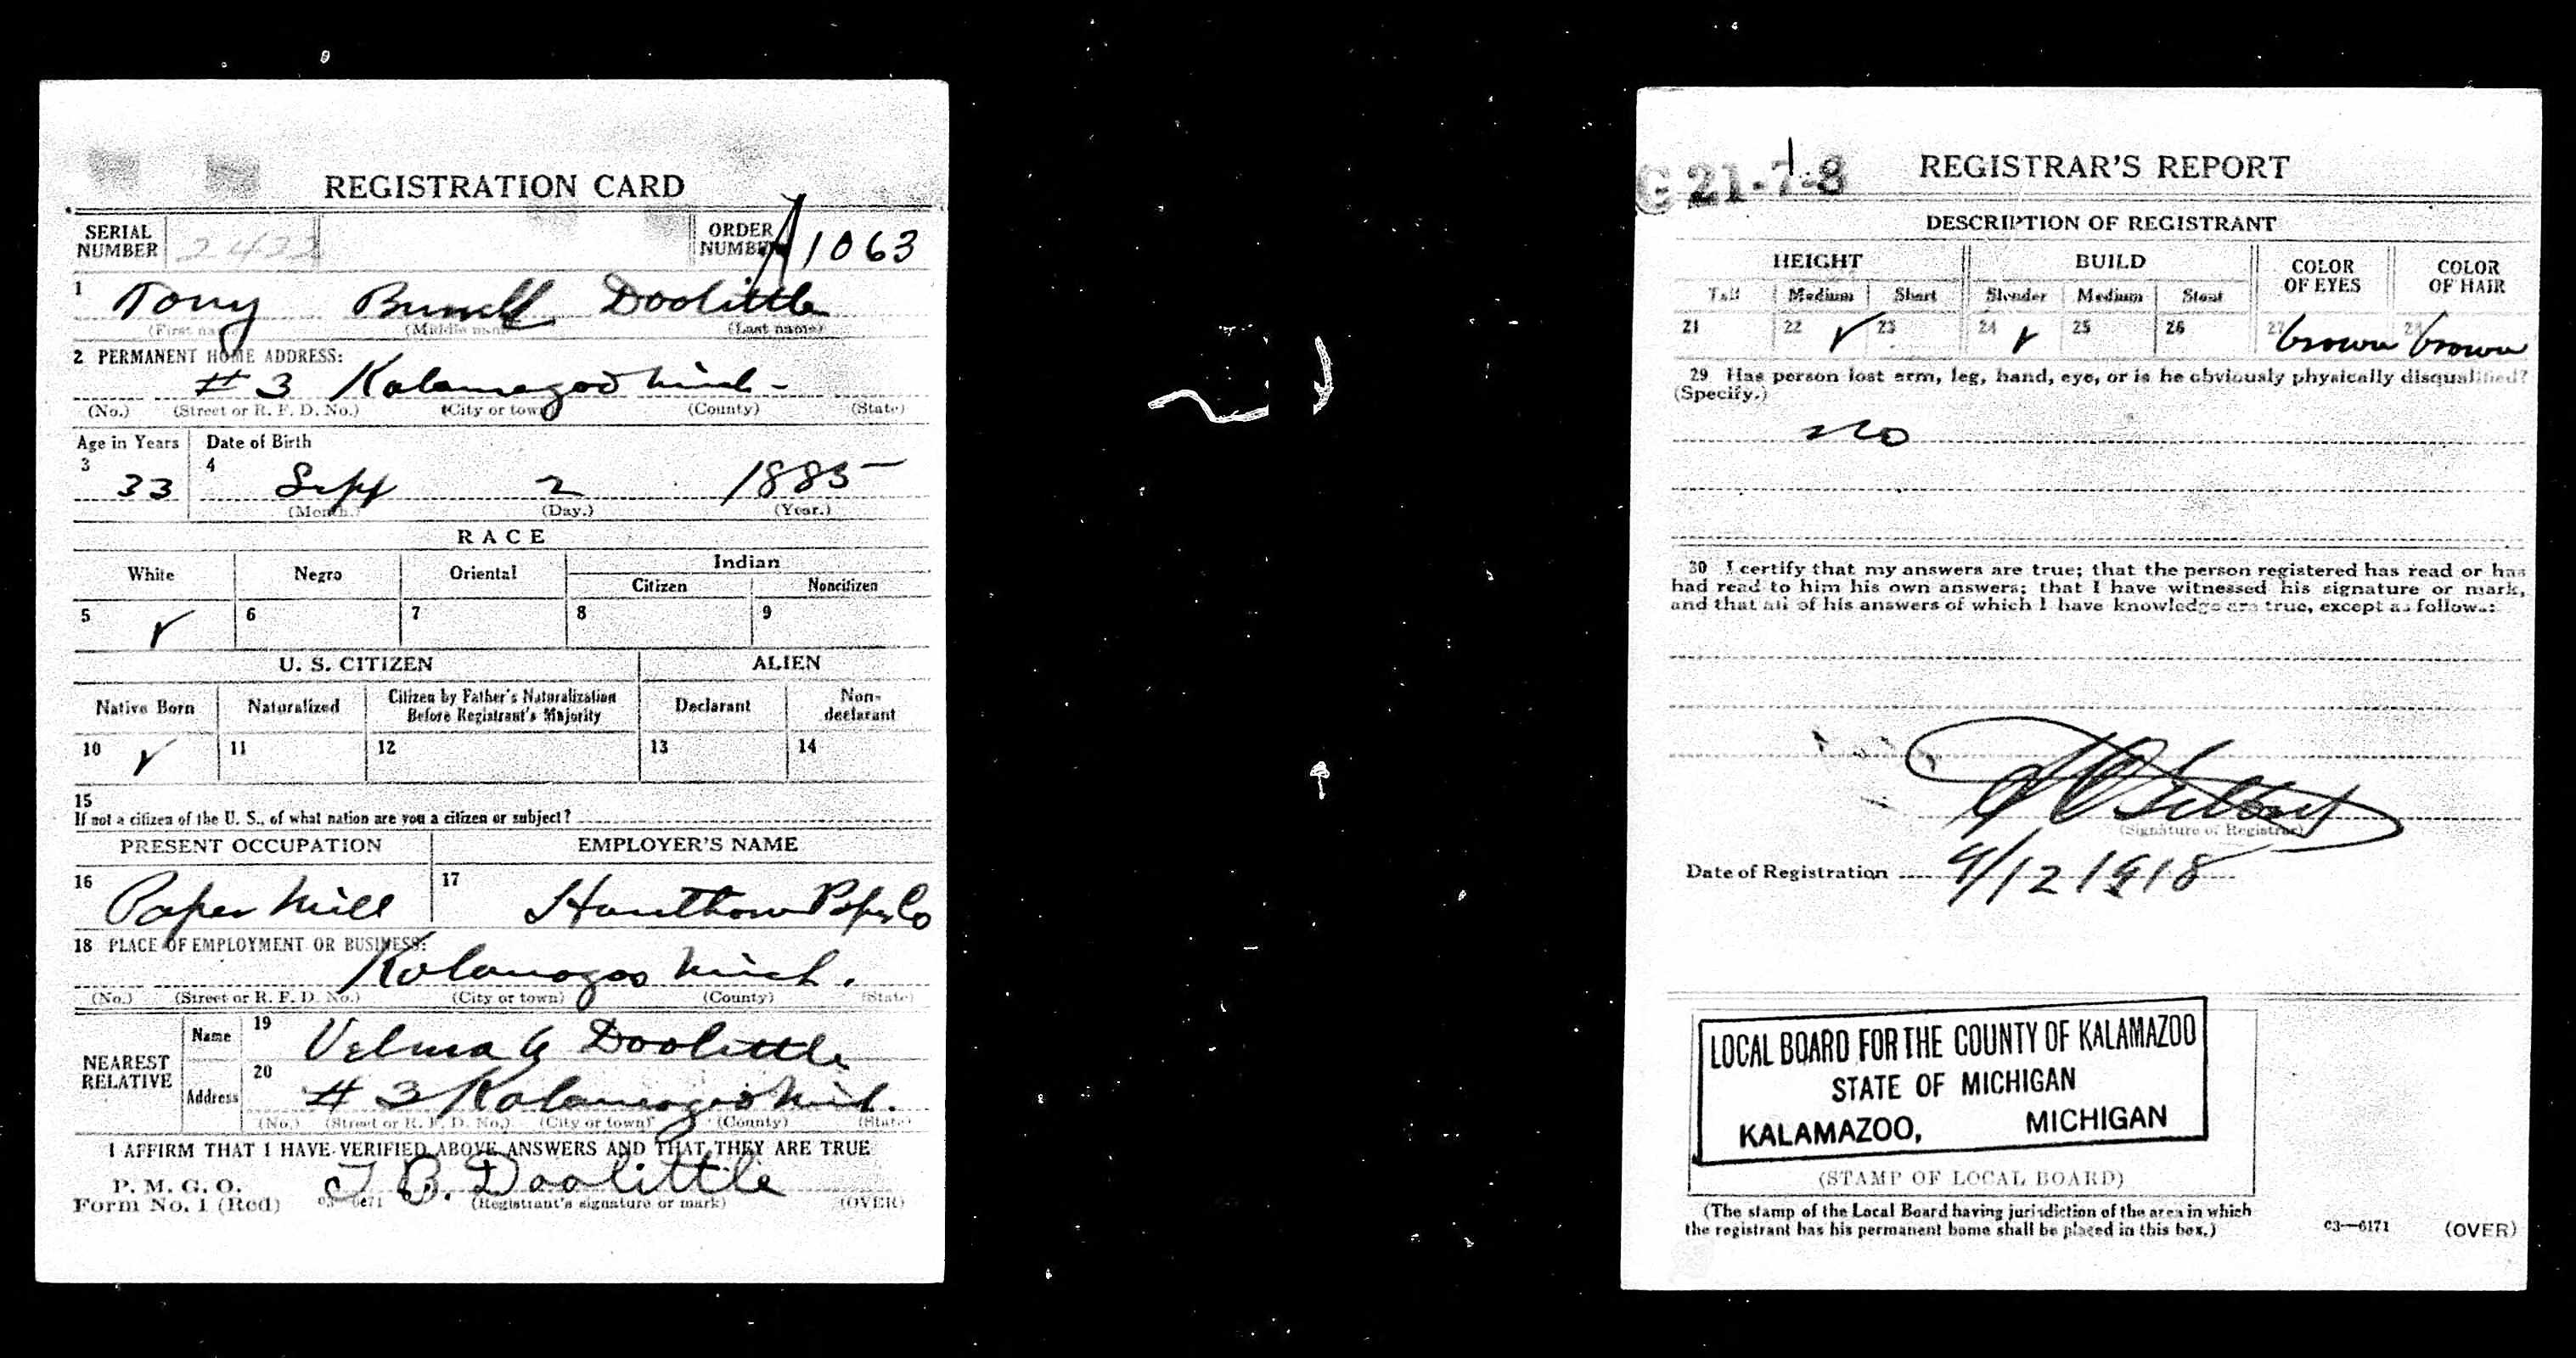 REGISTRATION CARD
SERIAL NUMBER 2432 ORDER NUMBER A1063
1 Tony Doolittle
(First name) (Middle name) (Last name)
2 PERMANENT HOME ADDRESS:
# 3 Kalamazoo Mich -
(No.) (Street or R. F. D. No.) (City or town) (County) (State)
Age in Years Date of Birth
3 33 4 Sept 2 1885
(Month.) (Day.) (Year.)
RACE
White Negro Oriental Indian
Citizen Noncitizen
5 ✓ 6 7 8 9
U. S. CITIZEN ALIEN
Native Born Naturalized Citizen by Father's Naturalization Before Registrant's Majority Declarant Non-declarant
10 ✓ 11 12 13 14
15
If not a citizen of the U. S., of what nation are you a citizen or subject?
PRESENT OCCUPATION EMPLOYER'S NAME
16 Paper Mill 17 Hawthorn Paper Co
18 PLACE OF EMPLOYMENT OR BUSINESS:
Kalamazoo Mich.
(No.) (Street or R. F. D. No.) (City or town) (County) (State)
NEAREST RELATIVE
Name 19 Velma Doolittle
Address 20 # 3 Kalamazoo Mich.
(No.) (Street or R. F. D. No.) (City or town) (County) (State)
I AFFIRM THAT I HAVE VERIFIED ABOVE ANSWERS AND THAT THEY ARE TRUE
P. M. G. O.
Form No. 1 (Red) 03—6171 T B. Doolittle (Registrant's signature or mark) (OVER)
21-7-8 REGISTRAR'S REPORT
DESCRIPTION OF REGISTRANT
HEIGHT BUILD COLOR OF EYES COLOR OF HAIR
Tall Medium Short Slender Medium Stout
21 22 ✓ 23 24 ✓ 25 26 27 brown 28 brown
29 Has person lost arm, leg, hand, eye, or is he obviously physically disqualified?
(Specify.)
no
30 I certify that my answers are true; that the person registered has read or has
had read to him his own answers; that I have witnessed his signature or mark,
and that all of his answers of which I have knowledge are true, except as follows:
(Signature of Registrar)
Date of Registration 9/12 1918
LOCAL BOARD FOR THE COUNTY OF KALAMAZOO
STATE OF MICHIGAN
KALAMAZOO, MICHIGAN
(STAMP OF LOCAL BOARD)
(The stamp of the Local Board having jurisdiction of the area in which
the registrant has his permanent home shall be placed in this box.)
03—6171 (OVER)